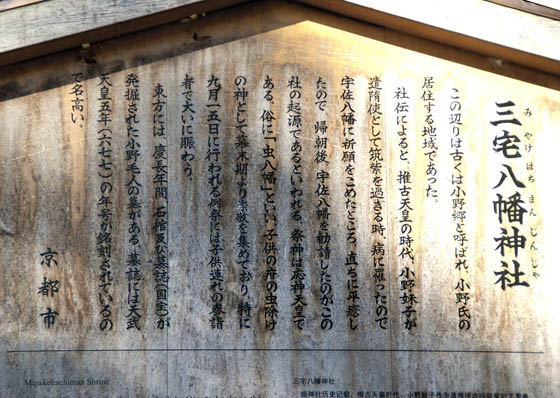 三宅八幡神社
みやけはちまんじんじゃ
この辺りは古くは小野郷と呼ばれ、小野氏の
居住する地域であった。
社伝によると、推古天皇の時代、小野妹子が
遣隋使として筑紫を過ぎる時、病に罹ったので
宇佐八幡に祈願をこめたところ、直ちに平癒し
たので、帰朝後、宇佐八幡を勧請したのがこの
社の起源であるといわれる。祭神は応神天皇で
ある。俗に「虫八幡」といい、子供の疳の虫除け
の神として幕末期より崇敬を集めており、特に
九月一五日に行われる例祭には子供連れの参詣
者で大いに賑わう。
東方には、慶長年間、石棺及び墓誌(国宝)が
発掘された小野毛人の墓がある。墓誌には天武
天皇五年(六七七)の年号が銘刻されているの
で名高い。
京都市
Miyakehachiman Shrine
三宅八幡神社